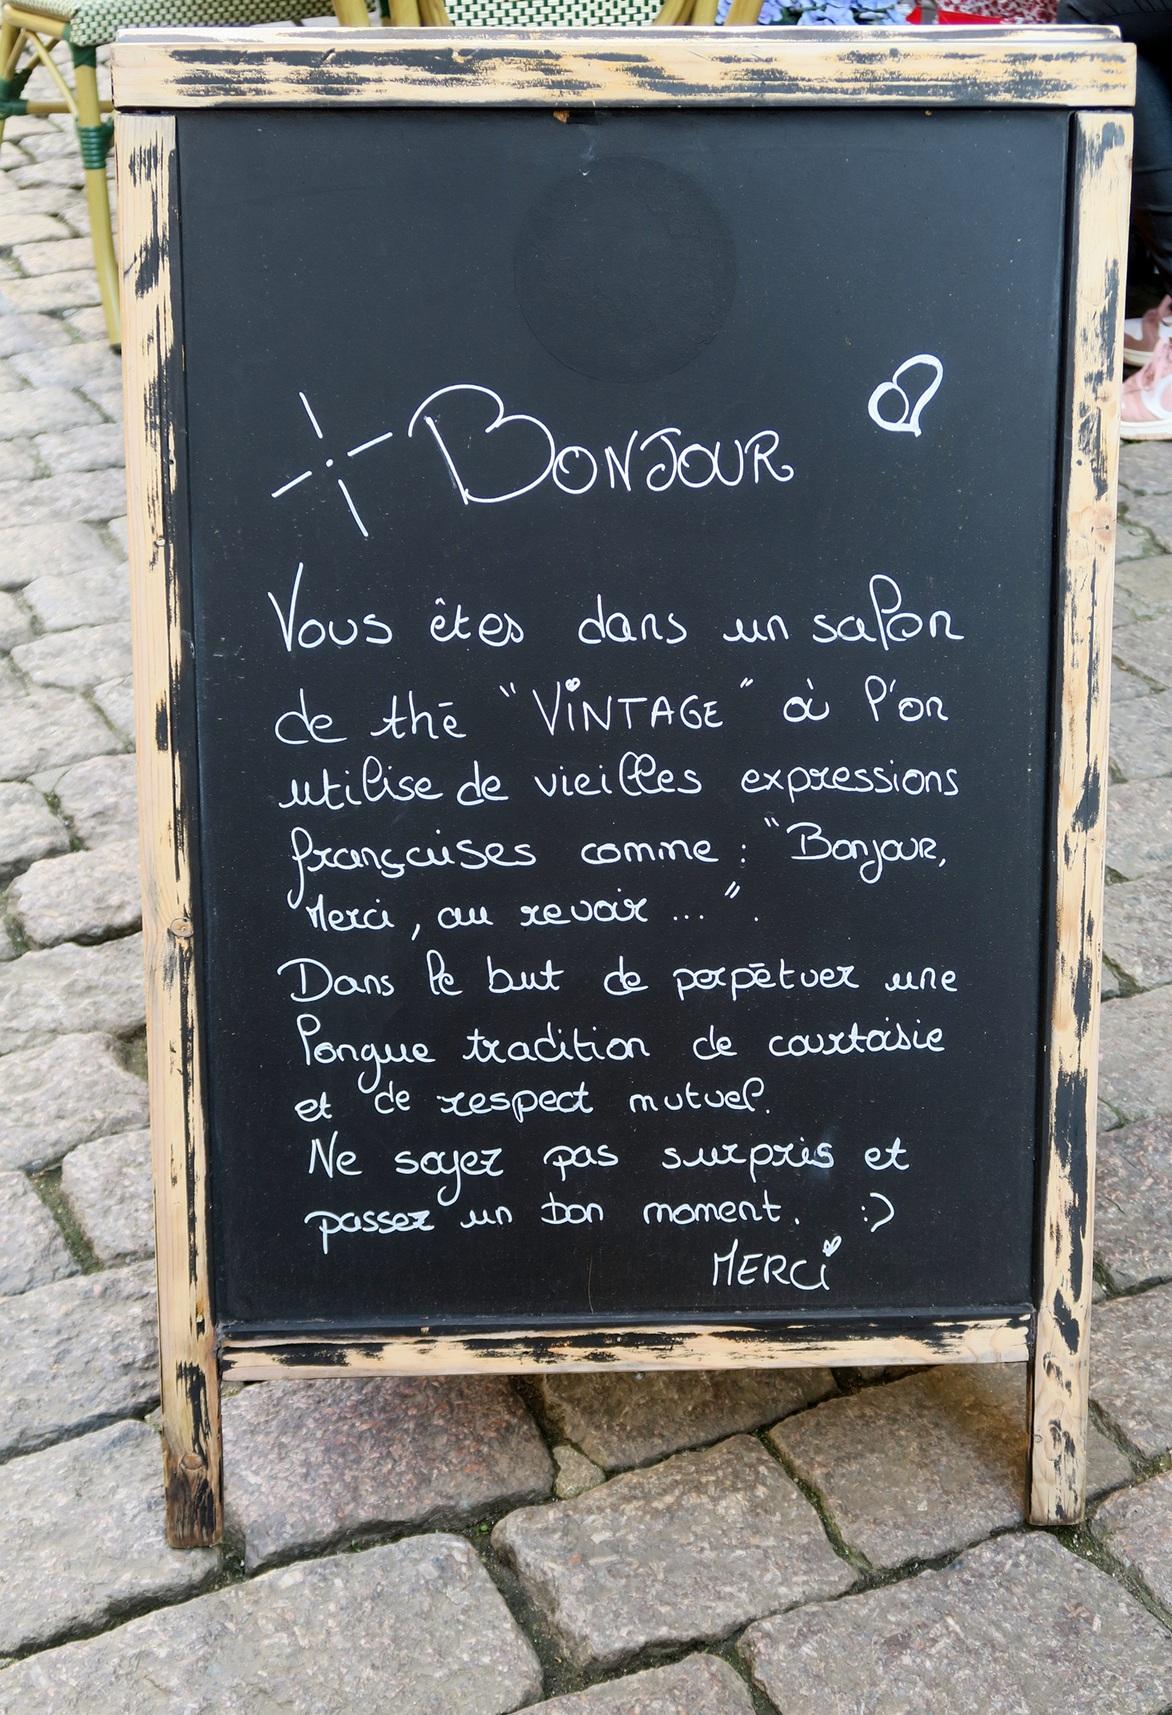 BONJOUR
Vous êtes dans un salon
de thé "VINTAGE" où l'on
utilise de vieilles expressions
françaises comme : "Bonjour,
Merci, au revoir ... ".
Dans le but de perpétuer une
longue tradition de courtoisie
et de respect mutuel.
Ne soyez pas surpris et
passez un bon moment. :)
MERCi